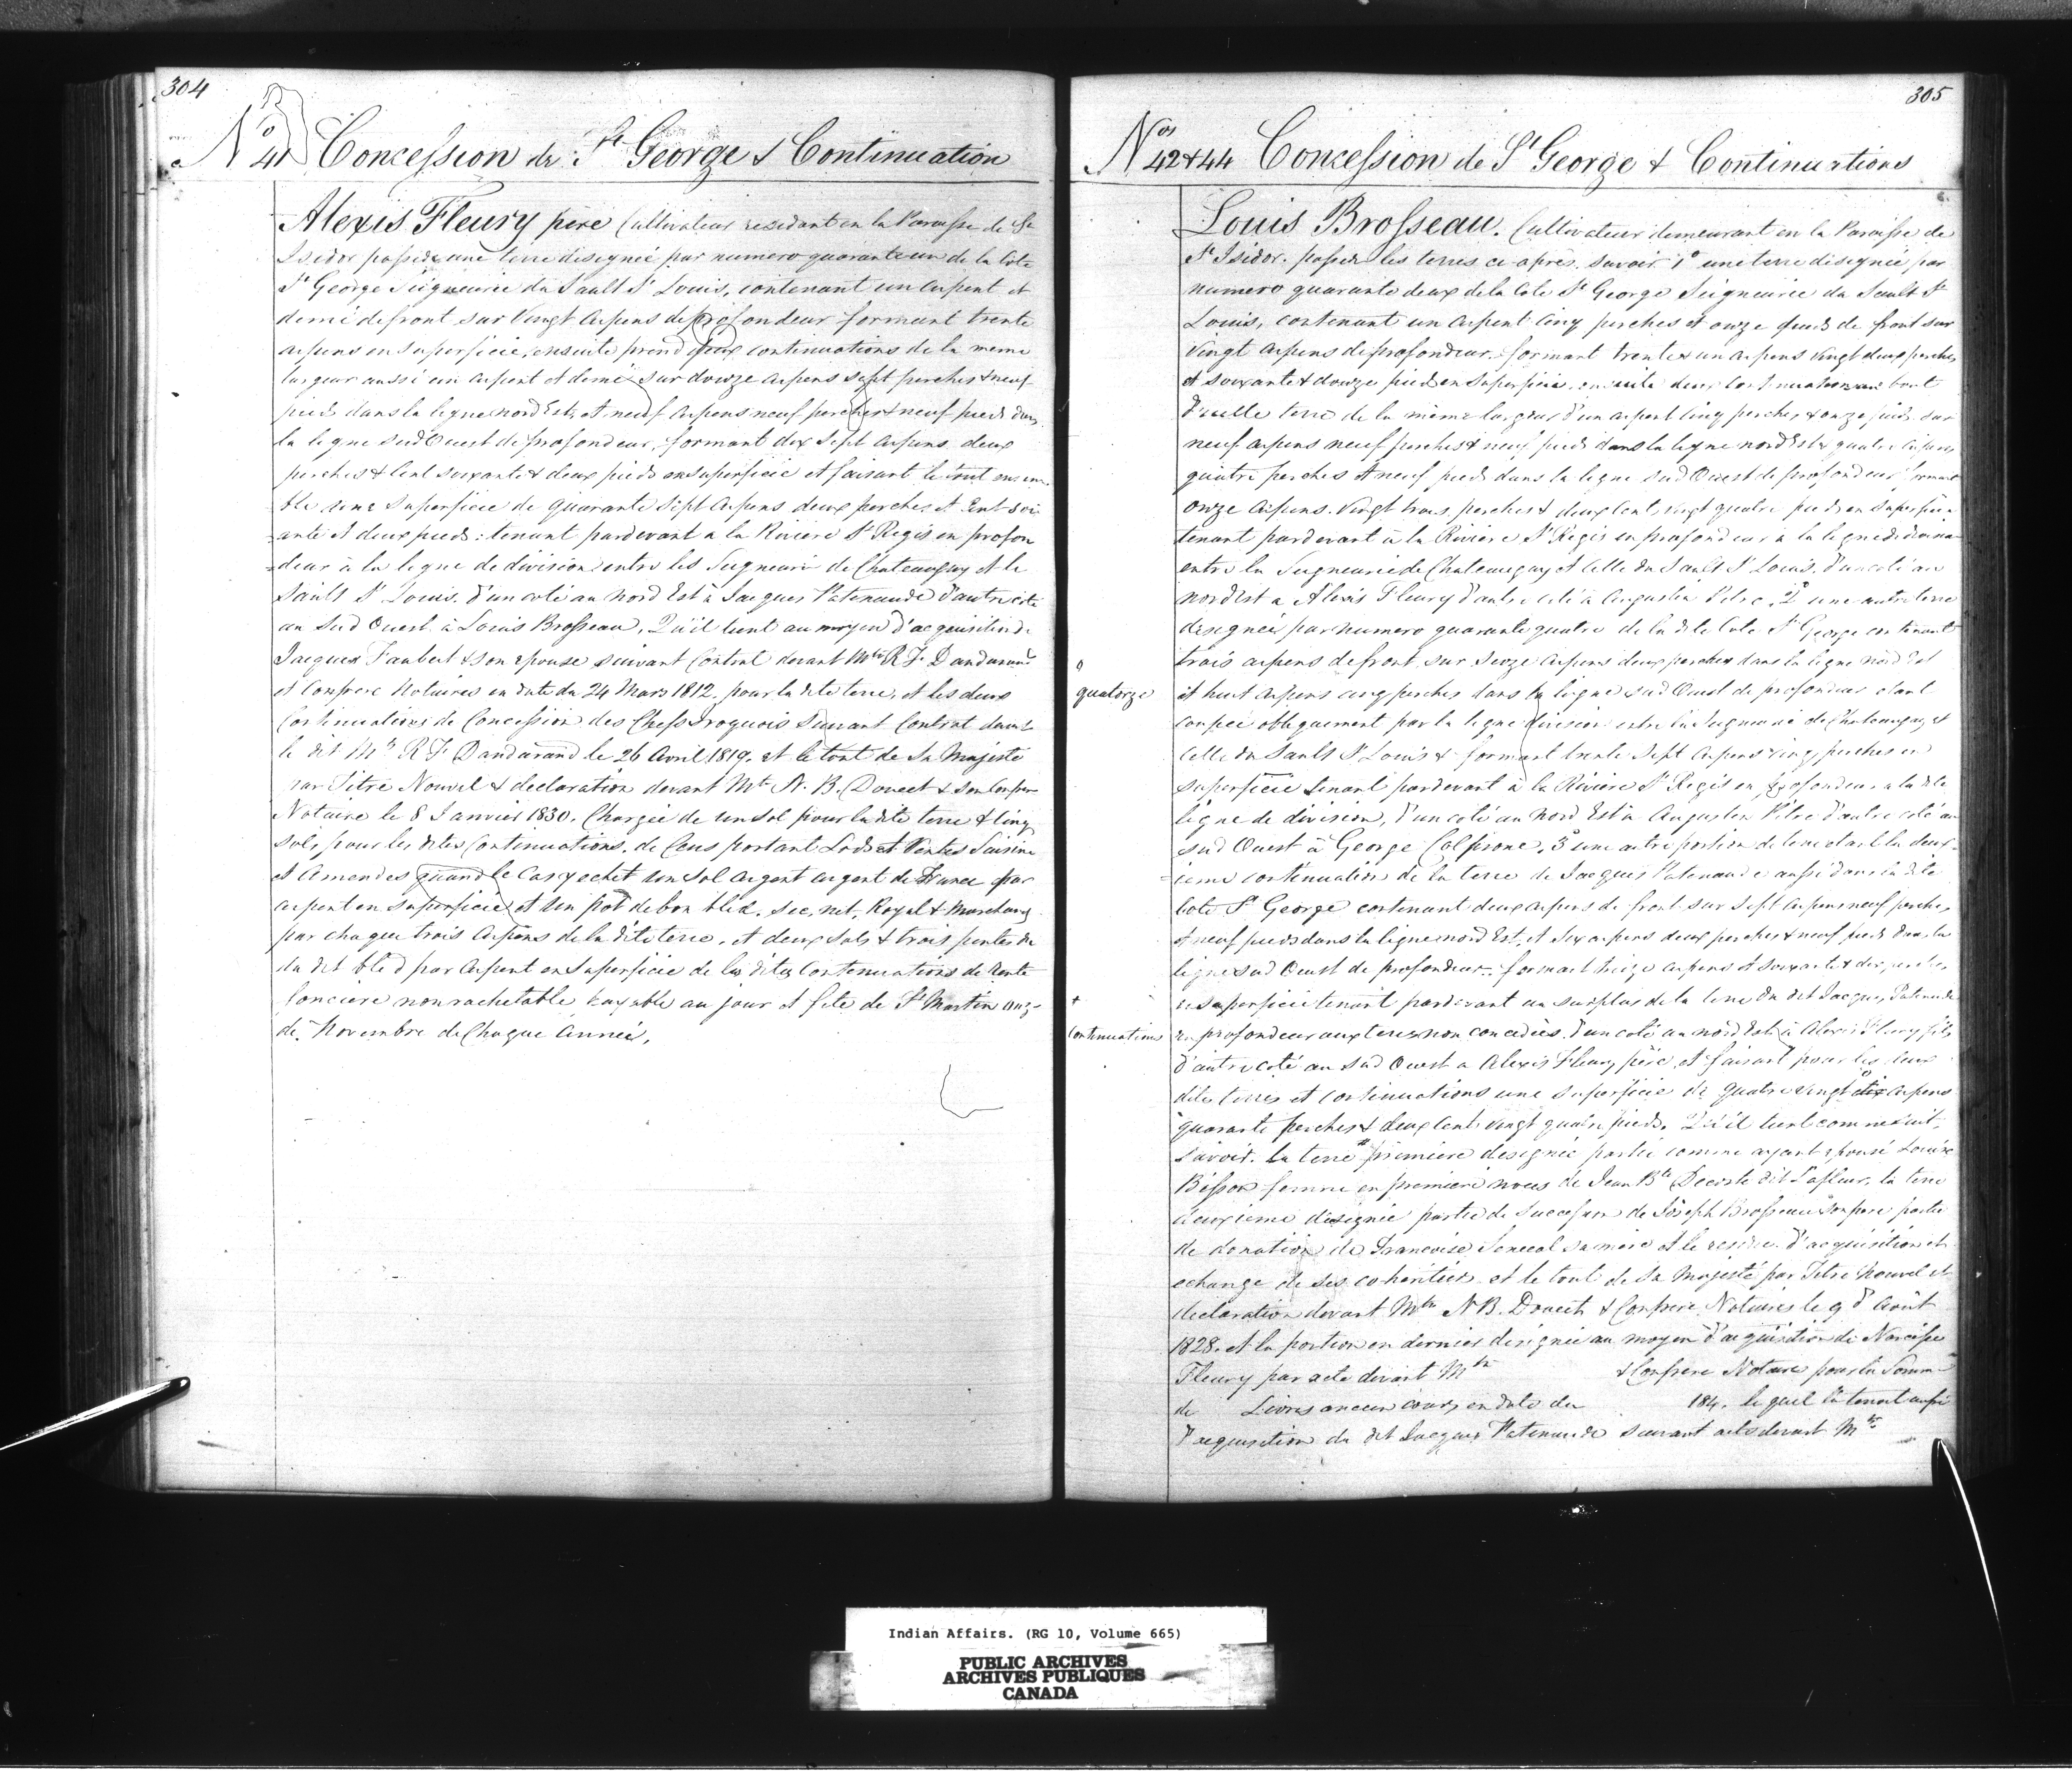 304
No 41 Concession de St George & Continuation
Alexis Fleury père Cultivateur residant en la Paroisse de St
Isidor possede une terre designée par numero quarante un de la Cote
St George Seigneurie du Sault St Louis, contenant un arpent et
demi de front sur Vingt arpens de profondeur formant trente
arpens en superficie, ensuite prend deux continuations de la meme
largeur aussi un arpent et demi sur douze arpens sept perches & neuf
pieds dans la ligne nord Est, et neuf arpens neuf perches & neuf pieds dans
la ligne sud Ouest de profondeur, formant dix Sept arpens deux
perches & Cent soixante & deux pieds en superficie et faisant le tout ensem
ble une superficie de quarante Sept arpens deux perches et Cent soix
=ante et deux pieds: tenant pardevant a la Riviere St Regis en profon
=deur à la ligne de division entre les Seigneurie de Chateauguay et le
Sault St Louis. d'un coté au Nord Est à Jacques Patenaude d'autre coté
au Sud Ouest à Louis Brosseau, Qu'il tient au moyen d'acquisition de
Jacques Faubert & son epouse suivant Contrat devant Mtre R F. Dandurand
et Confrere Notaires en date du 24 Mars 1812, pour la dite terre, et les deux
Continuations de Concession des Chefs Iroquois Suivant Contrat devant
le dit Mtre R F. Dandurand le 26 Avril 1819. et le tout de Sa Majesté
par Titre Nouvel & declaration devant Mtre N. B. Doucet & son Confrere
Notaire le 8 Janvier 1830. Chargée de un sol pour la dite terre & cinq
sols pour les dites Continuations, de Cens portant Lods et Ventes Saisine
et Amendes quand le Cas y echet un Sol argent argent de France par
arpent en superficie et un pot de bon bled, sec, net, Royal & Marchand
par chaque trois Arpens de la dite terre, et deux sols & trois pintes de
du dit bled par Arpent en Superficie de les dites Continuations de Rente
fonciere non rachetable payable au jour et fete de St Martin onze
de Novembre de Chaque année,
305
Nos 42 & 44 Concession de St George & Continuations
Louis Brosseau. Cultivateur demeurant en la Paroisse de
St Isidor. possede les terres ci-apres. savoir 1o une terre designée par
numero quarante deux de la Cote St George Seigneurie du Sault St
Louis, contenant un arpent cinq perches et onze pieds de front sur
Vingt arpens de profondeur. formant trente & un arpens Vingt deux perches
et soixante & douze pieds en superficie, ensuite deux Continuations au bout
d'icelle terre de la même largeur d'un arpent cinq perches & onze pieds sur
neuf arpens neuf perches & neuf pieds dans la ligne nord Est & quatre arpens
quatre perches et neuf pieds dans la ligne sud Ouest de profondeur formant
onze arpens. Vingt trois perches & deux Cent vingt quatre pieds en superficie
tenant pardevant à la Riviere St Regis en profondeur a la ligne de division
entre la Seigneurie de Chateauguay et Celle du Sault St Louis. d'un coté au
nord Est a Alexis Fleury d'autre coté à Augustin Pitre, 2o une autre terre
designée par numero quarante quatre de la dite Cote St George contenant
trois arpens de front, sur seize arpens deux perches dans la ligne nord Est
o
quatorze
et huit arpens cinq perches dans la ligne sud Ouest de profondeur etant
coupée obliquement par la ligne division entre la Seigneurie de Chateauguay et
Celle du Sault St Louis & formant trente Sept arpens cinq perches en
superficie tenant pardevant à la Riviere St Regis en profondeur a la dite
ligne de division, d'un coté au Nord Est à Augustin Pitre d'autre coté au
sud Ouest à George, 3o une autre portion de terre etant la deux-
=ieme continuation de la terre de Jacques Patenaude aussi dans la dite
Cote St George contenant deux arpens de front sur Sept arpens neuf perches
et neuf pieds dans la ligne nord Est, et six arpens deux perches & neuf pieds dans la
ligne sud Ouest de profondeur. formant treize arpens et soixante & dix perches
+
continuations
en superficie tenant pardevant au surplus de la terre du dit Jacques Patenaude
en profondeur aux terres non concedées. d'un coté au nord Est à Alexis Fleury fils
d'autre coté au Sud Ouest a Alexis Fleury père, et faisant pour les deux
dites terres et continuations une superficie de quatre vingt dix arpens
quarante perches & deux Cents vingt quatre pieds. Qu'il tient comme suit,
savoir. la terre premiere designée partie comme ayant epousé Louise
Bisson femme en premiere noces de Jean Bte Decoste dit Lafleur, la terre
deuxieme designée partie de Succession de Joseph Brosseau son pere partie
de donation de Francoise Senecal sa mere et le reste d'acquisition et
echange de ses coheritiers et le tout de Sa Majesté par Titre Nouvel et
declaration devant Mtre N. B. Doucet & Confrere Notaires le 9 d'Août
1828. et la portion en dernier designée au moyen d'acquisition de Narcisse
Fleury par acte devant Mtre & Confrere Notaire pour la Somme
de Livres ancien cours, en date du 184, lequel la tenait aussi
d'acquisition du dit Jacques Patenaude suivant acte devant Mtre
Indian Affairs. (RG 10, Volume 665)
PUBLIC ARCHIVES
ARCHIVES PUBLIQUES
CANADA